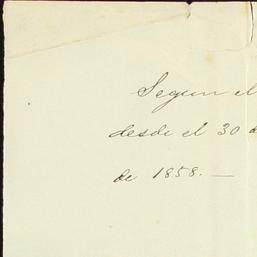 Segun el
desde el 30 d
de 1858. —